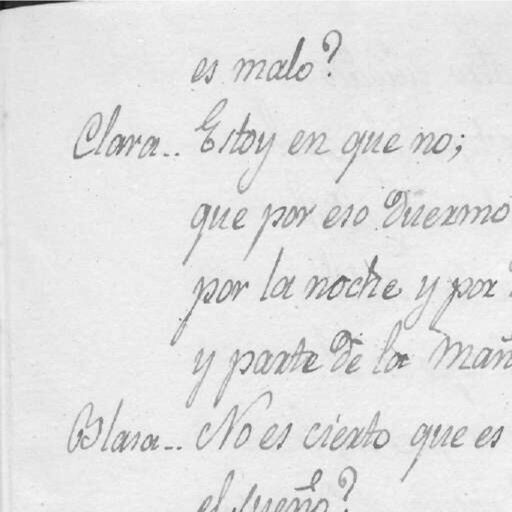 es malo?
Clara.. Estoy en que no;
que por eso duermo
por la noche y por
y parte de la Mañ
Blasa.. No es cierto que es
el sueño?